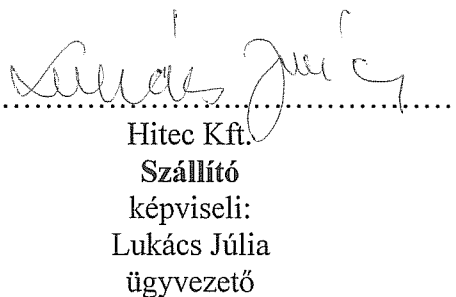 Lukács Júlia
Hitec Kft.
Szállító
képviseli:
Lukács Júlia
ügyvezető